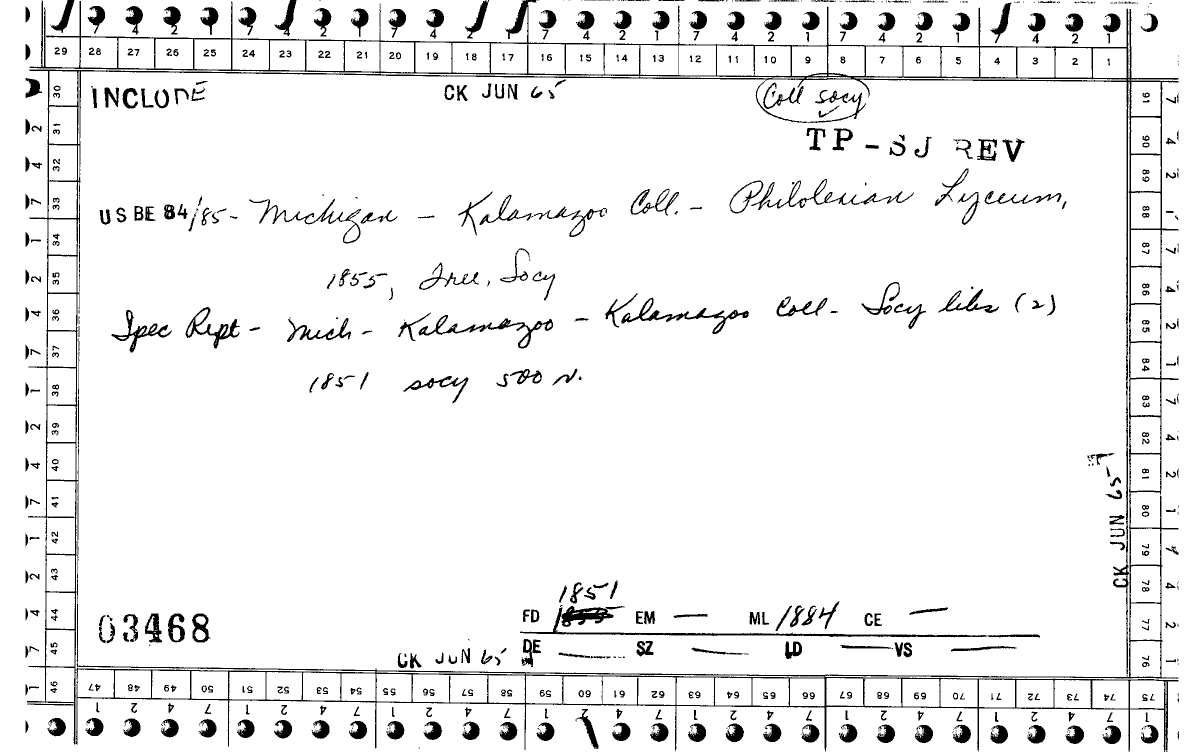 29 28 27 26 25 24 23 22 21 20 19 18 17 16 15 14 13 12 11 10 9 8 7 6 5 4 3 2 1
INCLUDE CK JUN 65 Coll socy
TP-SJ REV
US BE 84/85- Michigan - Kalamazoo Coll. - Philolexian Lyceum,
1855, Free, Socy
Spec Rept - Mich - Kalamazoo - Kalamazoo Coll - Socy libs (2)
1851 socy 500 v.
CK JUN 65
1851
03468 FD 1855 EM — ML 1884 CE —
CK JUN 65 DE — SZ — LD — VS —
30 31 32 33 34 35 36 37 38 39 40 41 42 43 44 45 46
91 90 89 88 87 86 85 84 83 82 81 80 79 78 77 76
47 48 49 50 51 52 53 54 55 56 57 58 59 60 61 62 63 64 65 66 67 68 69 70 71 72 73 74 75